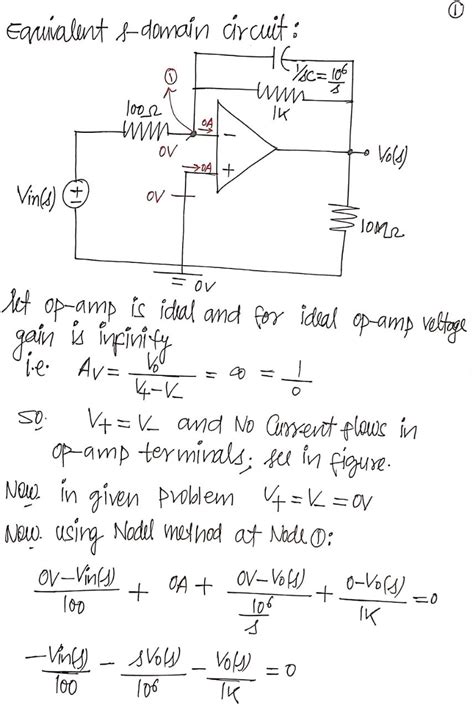 ①
Equivalent s-domain circuit:
1/sC = 10⁶/s
①
100Ω
1K
0A
−
0V
0A
+
Vo(s)
Vin(s)
+
−
0V
10MΩ
0V
let op-amp is ideal and for ideal op-amp voltage
gain is infinity
i.e. Av = Vo/(V+−V−) = ∞ = 1/0
So. V+ = V− and No Current flows in
op-amp terminals; see in figure.
Now in given problem V+ = V− = 0V
Now using Nodel method at Node ①:
(0V−Vin(s))/100 + 0A + (0V−Vo(s))/(10⁶/s) + (0−Vo(s))/1K = 0
−Vin(s)/100 − sVo(s)/10⁶ − Vo(s)/1K = 0